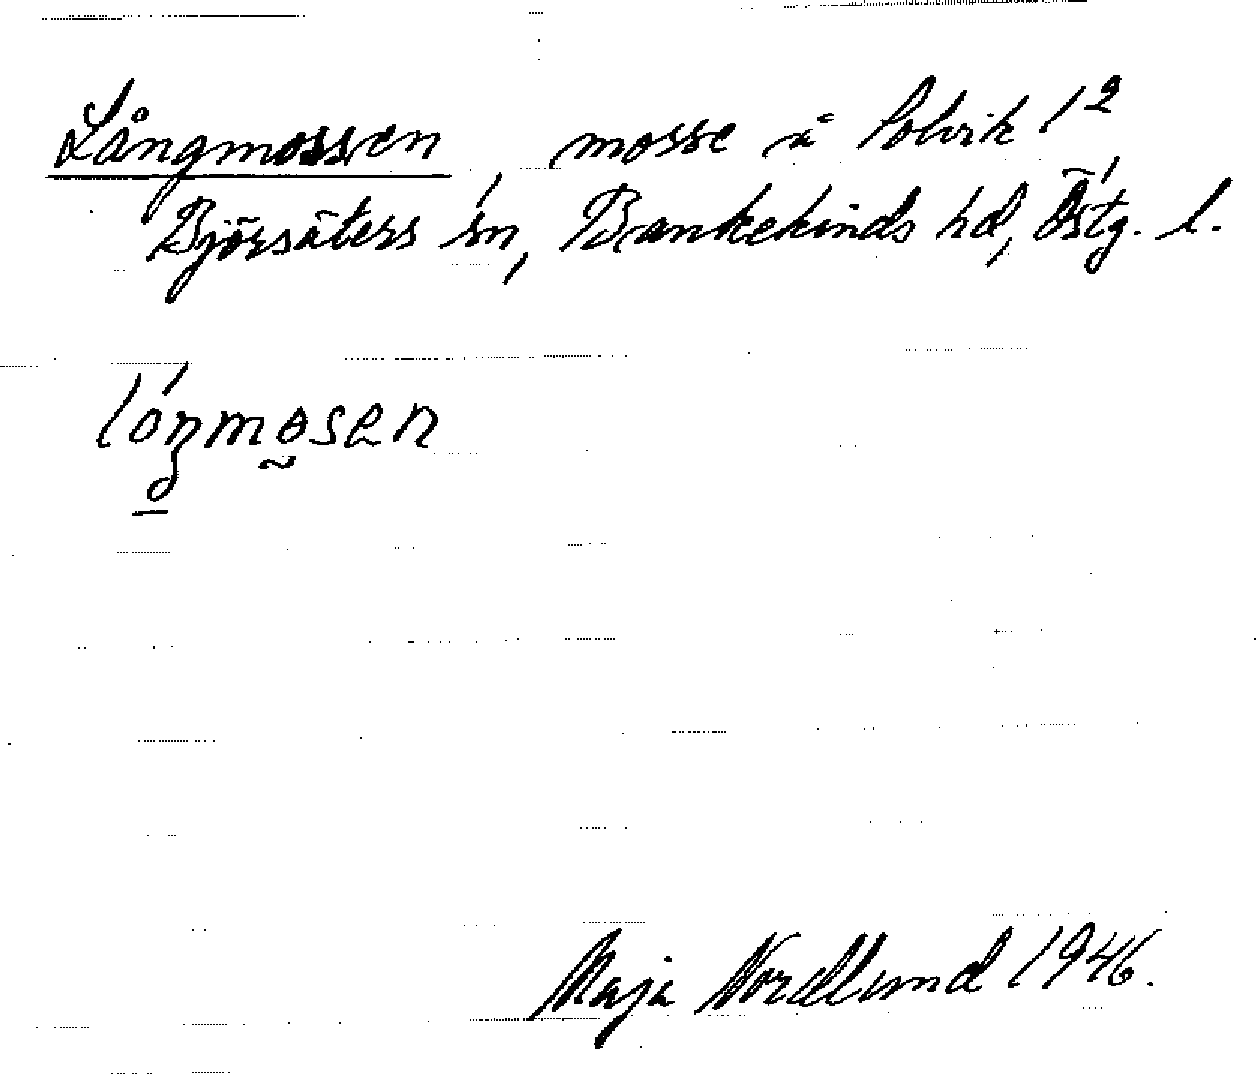 Långmossen, mosse å Solvik 1²
Björsäters sn, Bankekinds hd, Östg. l.
lóŋmo̰sen
Maja Nordlund 1946.